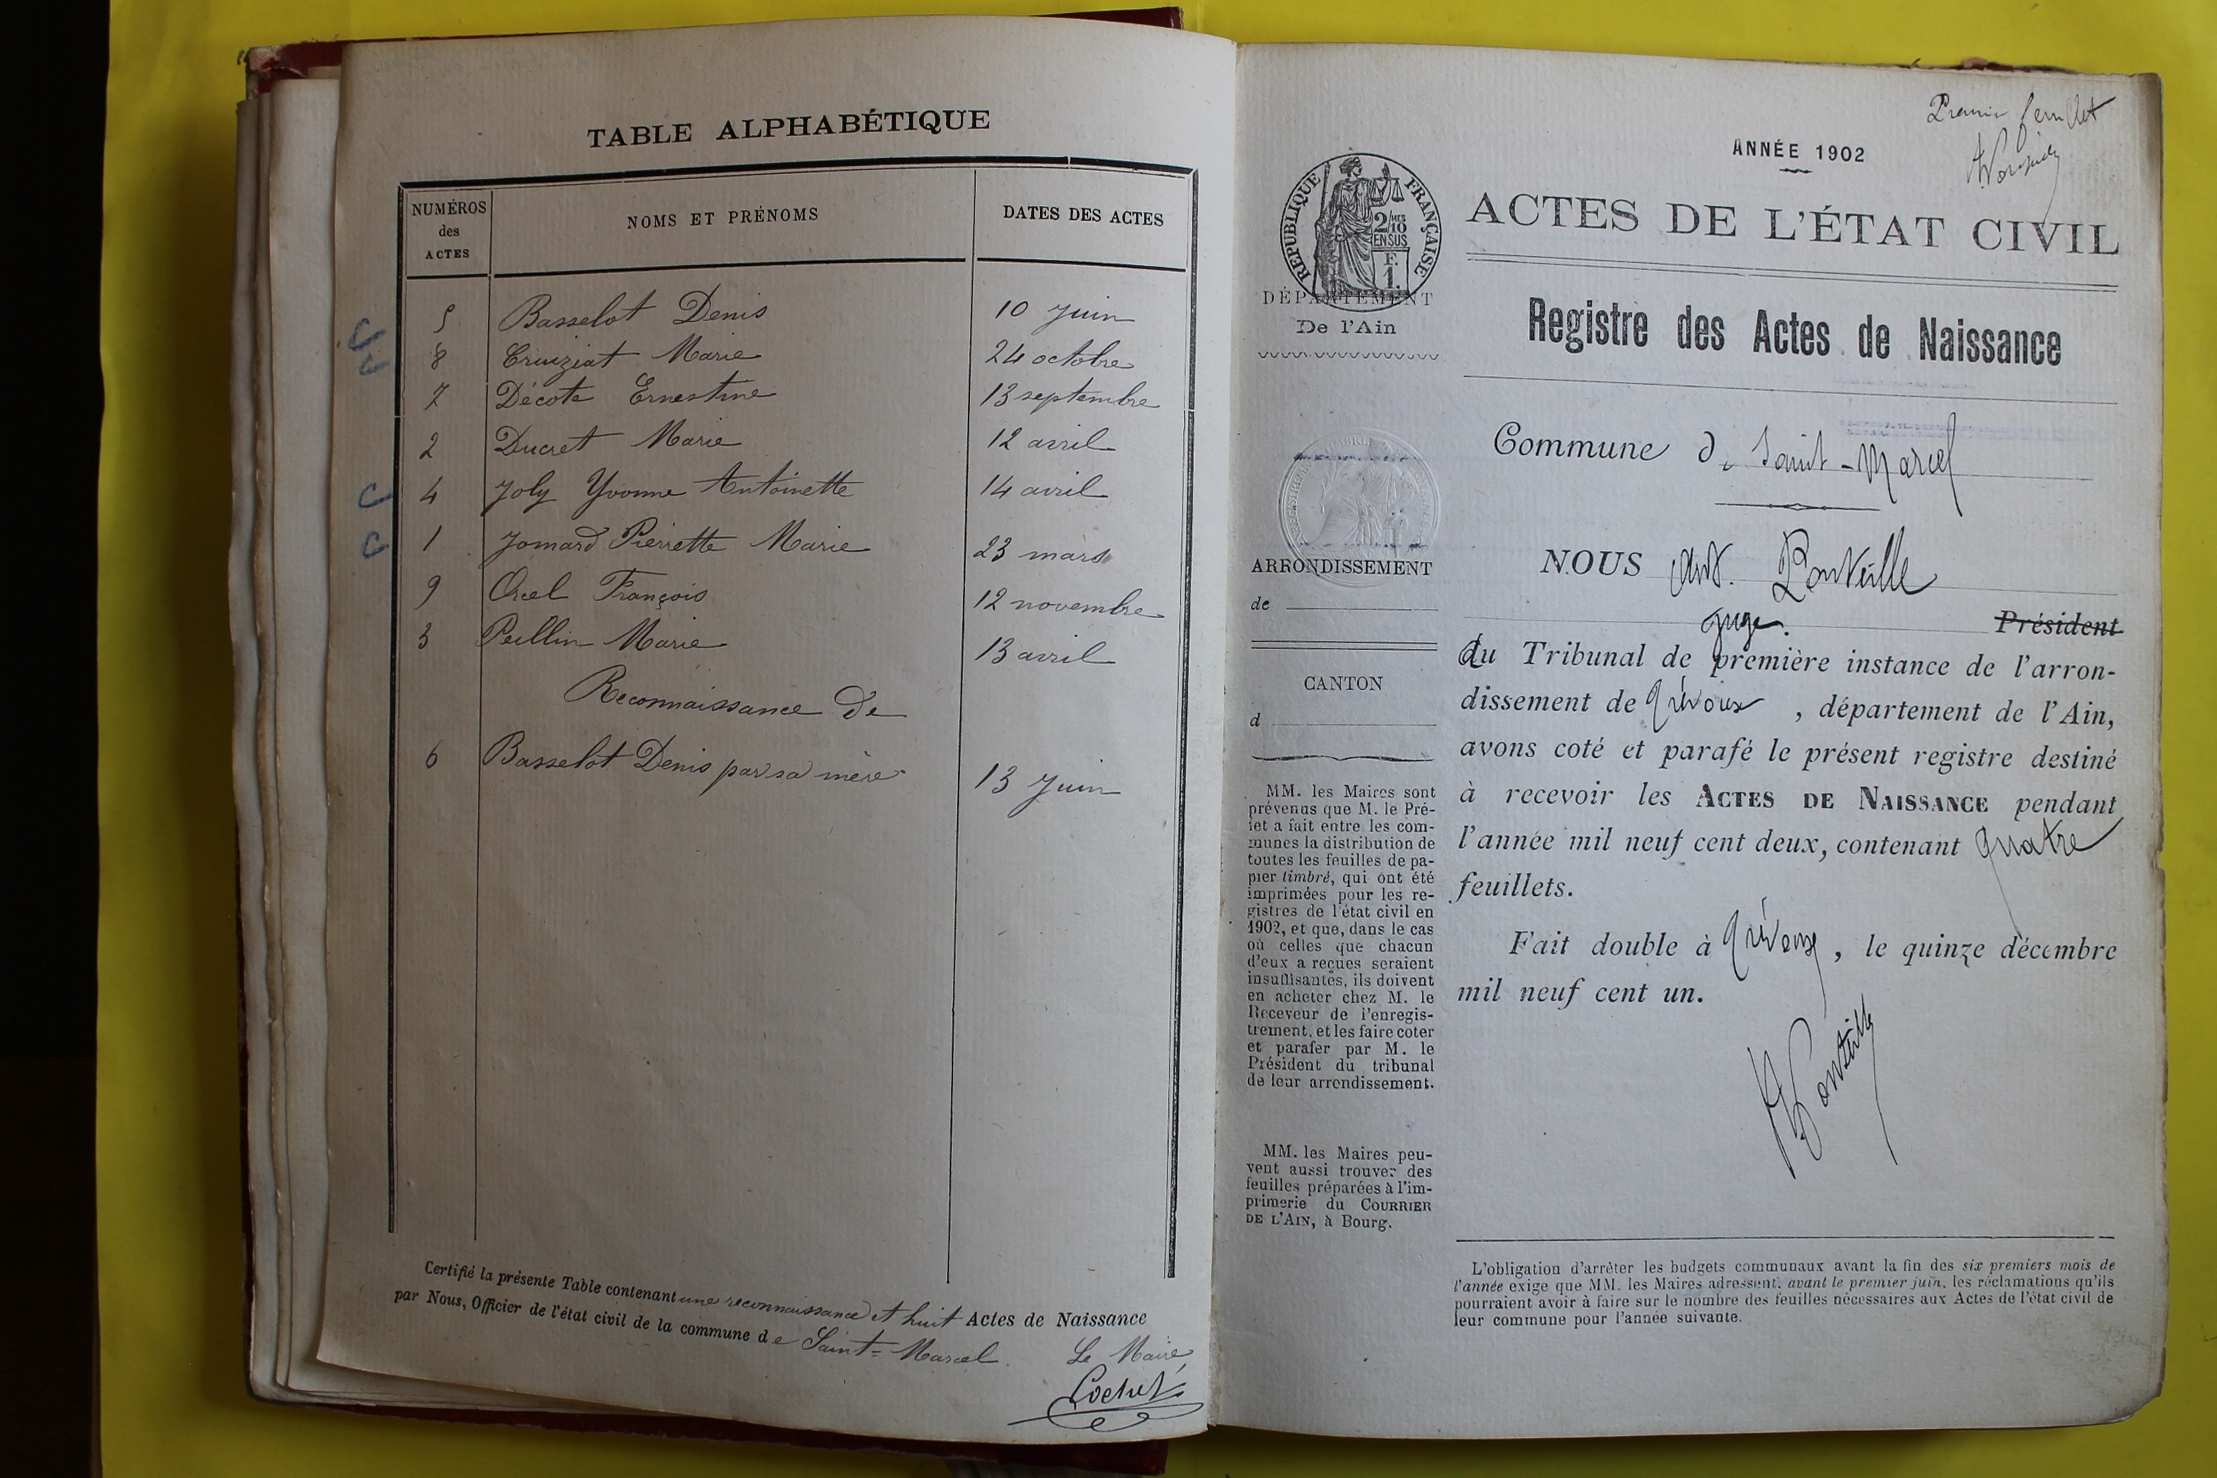 TABLE ALPHABÉTIQUE
NUMÉROS des ACTES NOMS ET PRÉNOMS DATES DES ACTES
5 Basselot Denis 10 Juin
8 Cruiziat Marie 24 octobre
7 Décote Ernestine 13 septembre
2 Ducret Marie 12 avril
4 Joly Yvonne Antoinette 14 avril
1 Jomard Pierrette Marie 23 mars
9 Orcel François 12 novembre
3 Peillin Marie 13 avril
Reconnaissance de
6 Basselot Denis par sa mère 13 Juin
Certifié la présente Table contenant une reconnaissance et huit Actes de Naissance
par Nous, Officier de l'état civil de la commune de Saint-Marcel. Le Maire,
Cochet
Premier feuillet
ANNÉE 1902
ACTES DE L'ÉTAT CIVIL
RÉPUBLIQUE FRANÇAISE
2/10
EN SUS
F.
1.
DÉPARTEMENT
De l'Ain
Registre des Actes de Naissance
Commune de Saint-Marcel
ARRONDISSEMENT
de
CANTON
d
NOUS Ant. Ponteille
juge. Président
du Tribunal de première instance de l'arron-
dissement de Trévoux, département de l'Ain,
avons coté et parafé le présent registre destiné
à recevoir les ACTES DE NAISSANCE pendant
l'année mil neuf cent deux, contenant quatre
feuillets.
Fait double à Trévoux, le quinze décembre
mil neuf cent un.
A Ponteille
MM. les Maires sont
prévenus que M. le Pré-
fet a fait entre les com-
munes la distribution de
toutes les feuilles de pa-
pier timbré, qui ont été
imprimées pour les re-
gistres de l'état civil en
1902, et que, dans le cas
où celles que chacun
d'eux a reçues seraient
insuffisantes, ils doivent
en acheter chez M. le
Receveur de l'enregis-
trement, et les faire coter
et parafer par M. le
Président du tribunal
de leur arrondissement.
MM. les Maires peu-
vent aussi trouver des
feuilles préparées à l'im-
primerie du COURRIER
DE L'AIN, à Bourg.
L'obligation d'arrêter les budgets communaux avant la fin des six premiers mois de
l'année exige que MM. les Maires adressent, avant le premier juin, les réclamations qu'ils
pourraient avoir à faire sur le nombre des feuilles nécessaires aux Actes de l'état civil de
leur commune pour l'année suivante.